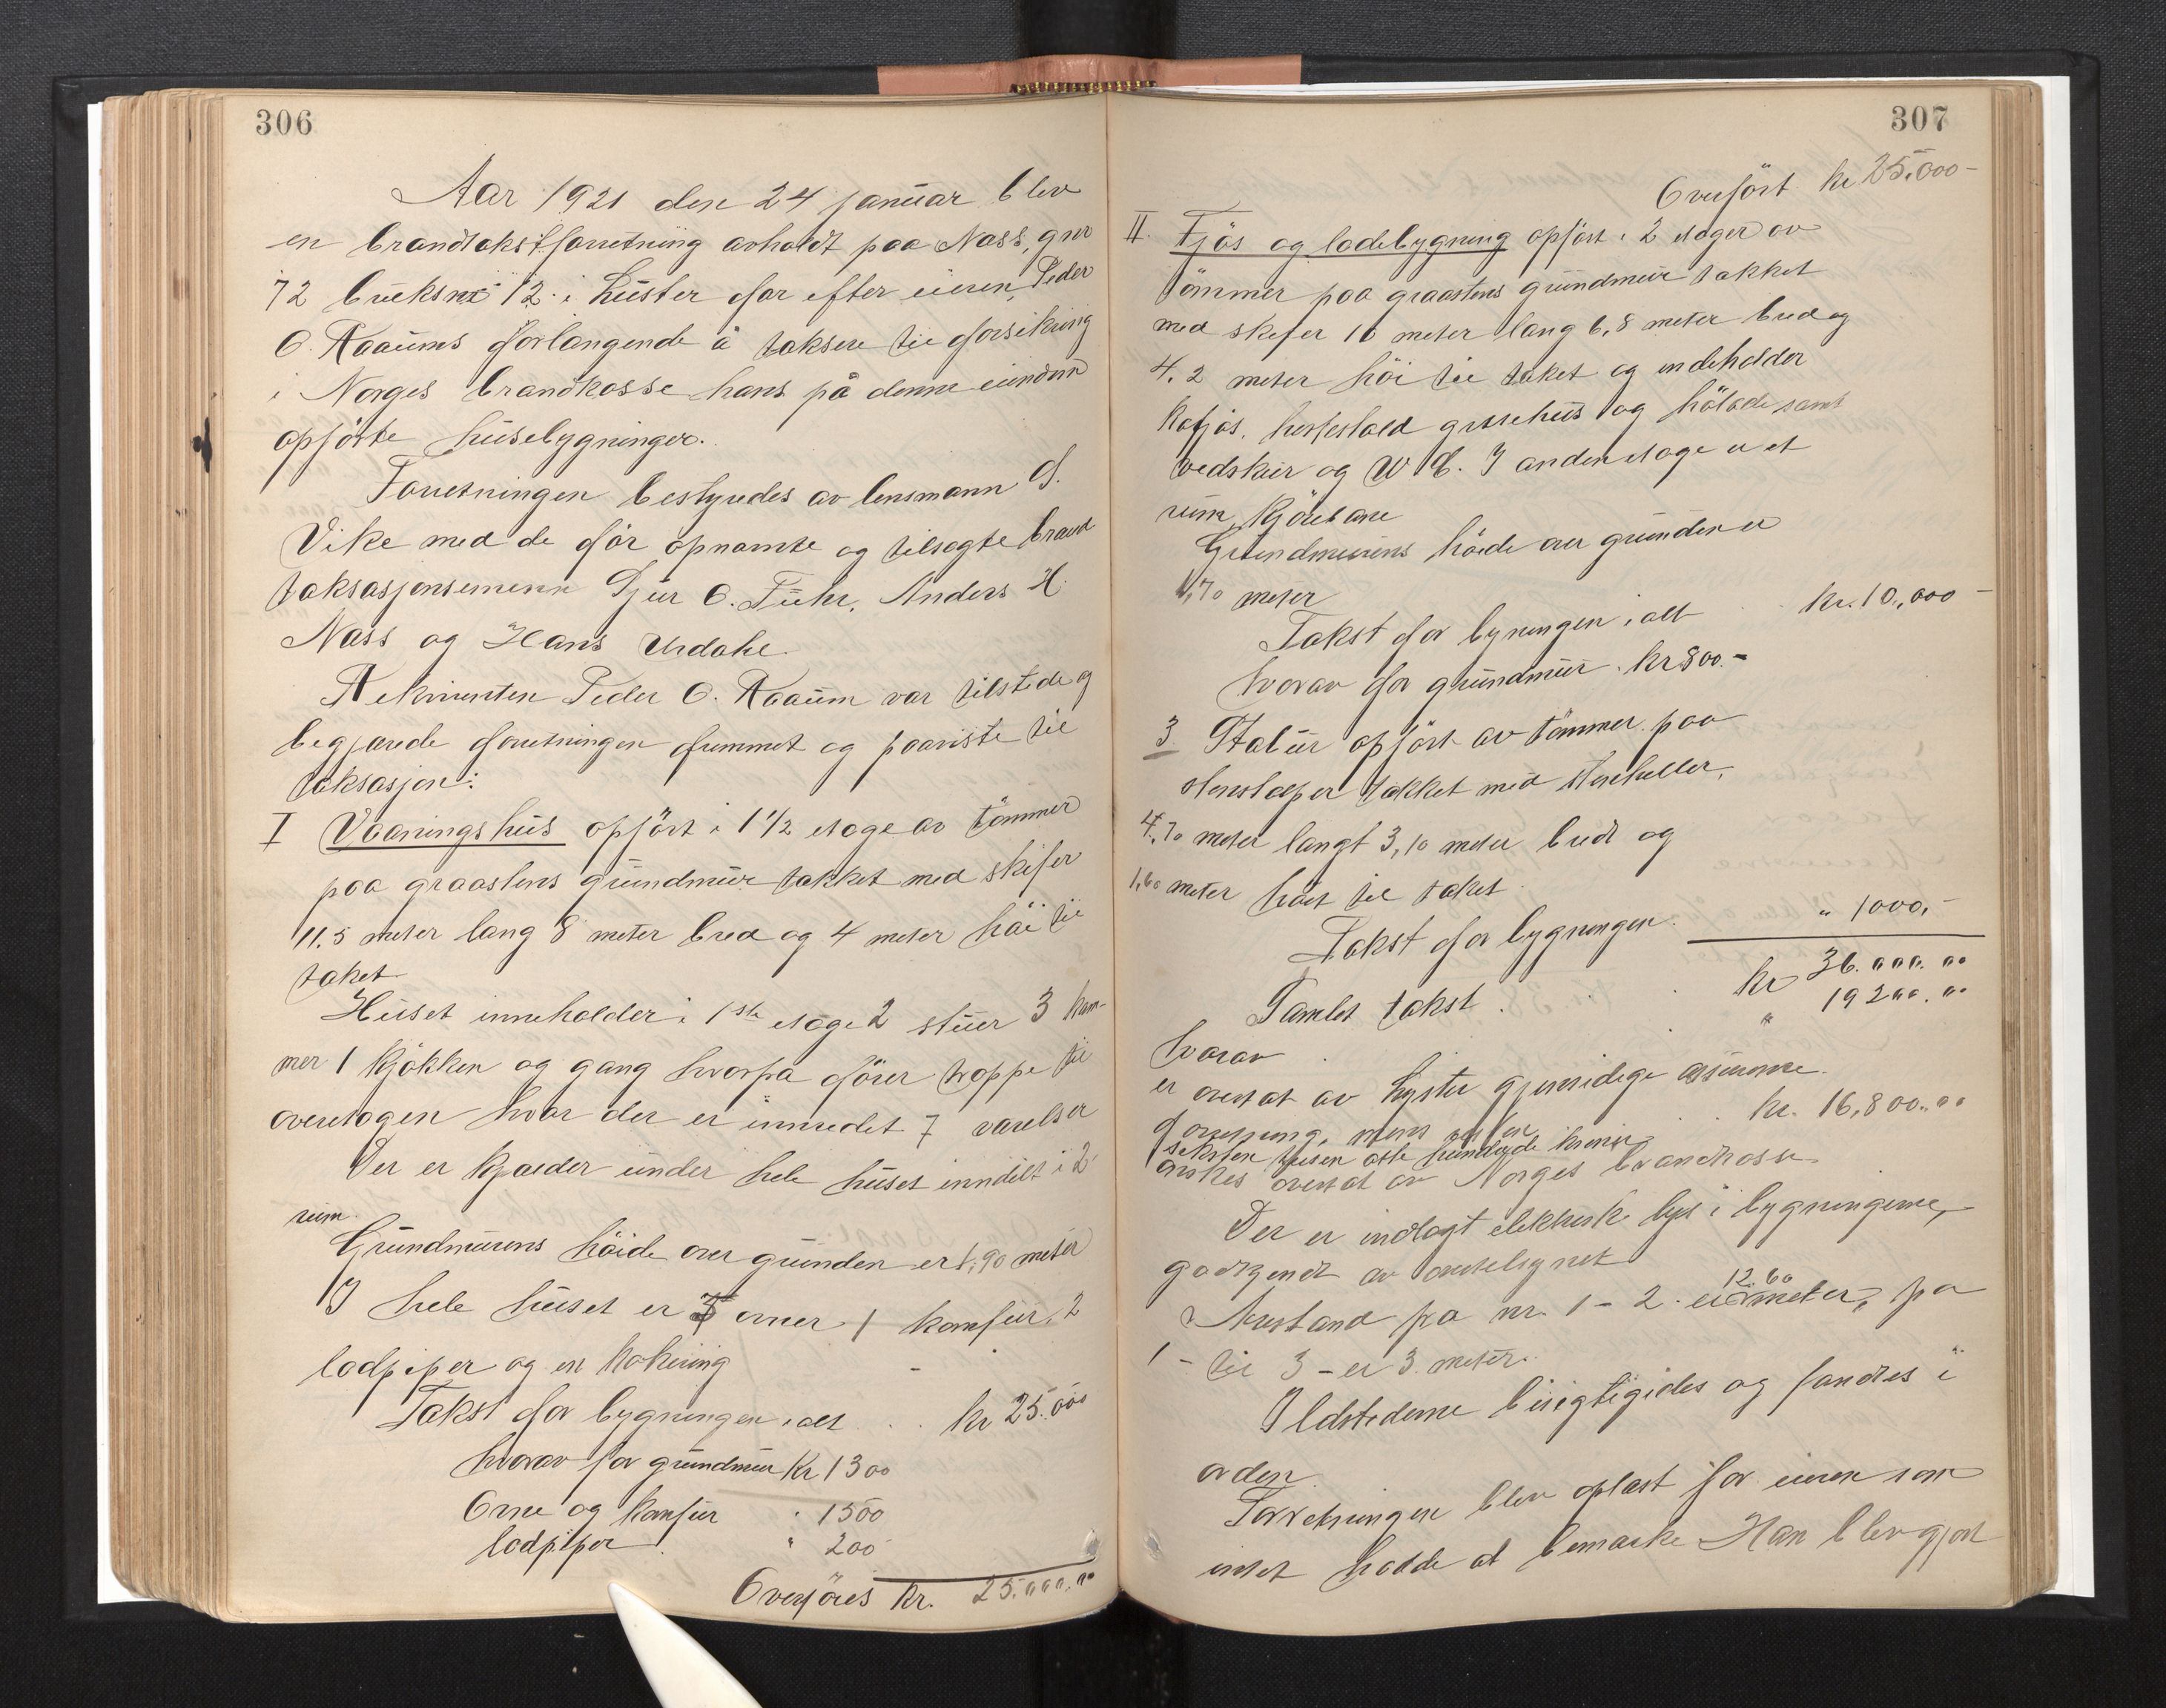 306
Aar 1921 den 24 januar blev
en brandtakstforretning avholdt paa Næss, gnr
72 bruksnr 12 i Luster for efter eieren, Peder
O. Raaums forlangende å taksere til forsikring
i Norges brandkasse hans på denne eiendom
opförte husebygninger.
Forretningen bestyredes av lensmann J.
Vike med de för opnævnte og tilsagte brand
taksasjonsmenn Sjur O. Fuhr, Anders H.
Næss og Hans Urdahl.
Rekvirenten Peder O. Raaum var tilstede og
begjærede forretningen fremmet og paaviste til
taksasjon:
I Vaaningshus opfört i 1 1/2 etage av tömmer
paa graastens grundmur tækket med skifer
11.5 meter lang 8 meter bred og 4 meter höi til
taket
Huset inneholder i 1ste etage 2 stuer 3 kam-
mer 1 kjökken og gang hvorfra förer trappe til
overetagen hvor der er innredet 7 værelser
Der er kjælder under hele huset inndelt i 2
rum.
Grundmurens höide over grunden er 1,90 meter
I hele huset er 3 ovner 1 komfur, 2
lodpiper og en bakerovn
Takst for bygningen i alt . . kr 25.000
hvorav for grundmur Kr 1300
Ovne og komfur " 1500
lodpiper " 200
Overföres kr. 25.000.00
307
Overfört kr 25.000-
II. Fjös og ladebygning opfört i 2 etager av
tömmer paa graastens grundmur tækket
med skifer 16 meter lang 6,8 meter bred og
4.2 meter höi til taket og indeholder
kofjös, hestestald grisehus og hölade samt
vedskur og W C. I anden etage er et
rum, kjörebane
Grundmurens höide over grunden er
1,70 meter
Takst for bygningen i alt . . kr. 10.,000-
hvorav for grundmur kr 800.-
3 Stabur opfört av tömmer paa
stenstolper tækket med stenheller,
4,70 meter langt 3,10 meter bredt og
1,60 meter höit til taket.
Takst for bygningen. " 1000,-
Samlet takst . . kr 36.000.00
hvorav " 19200.00
er overtat av Lyster gjensidige assurance
forening, mens resten . . kr. 16,800.00
seksten tusen otte hundrede kroner
önskes overtat av Norges brandkasse.
Der er indlagt elektrisk lys i bygningerne,
godkjendt av overtilsynet
Avstand fra nr. 1 - 2 er 12.60 meter, fra
1 - til 3 - er 3 meter.
Ildstederne besigtigedes og fandtes i
orden.
Forretningen blev oplæst for eieren som
intet hadde at bemærke Han blev gjort